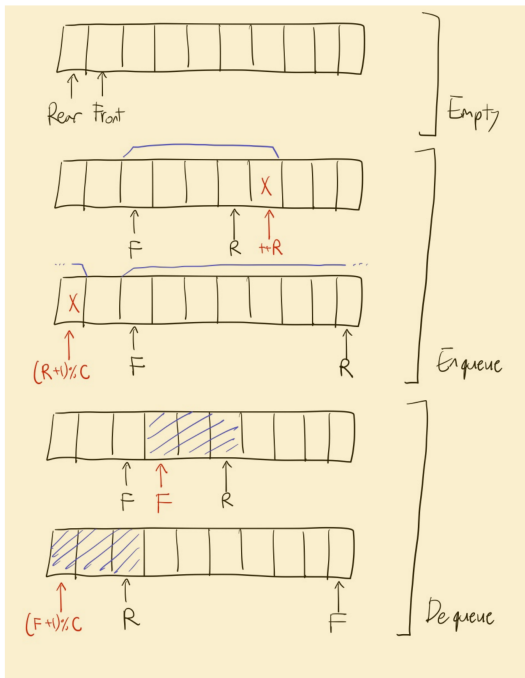 Rear Front
Empty
X
F R ++R
X
(R+1)%C F R
Enqueue
F F R
(F+1)%C R F
Dequeue